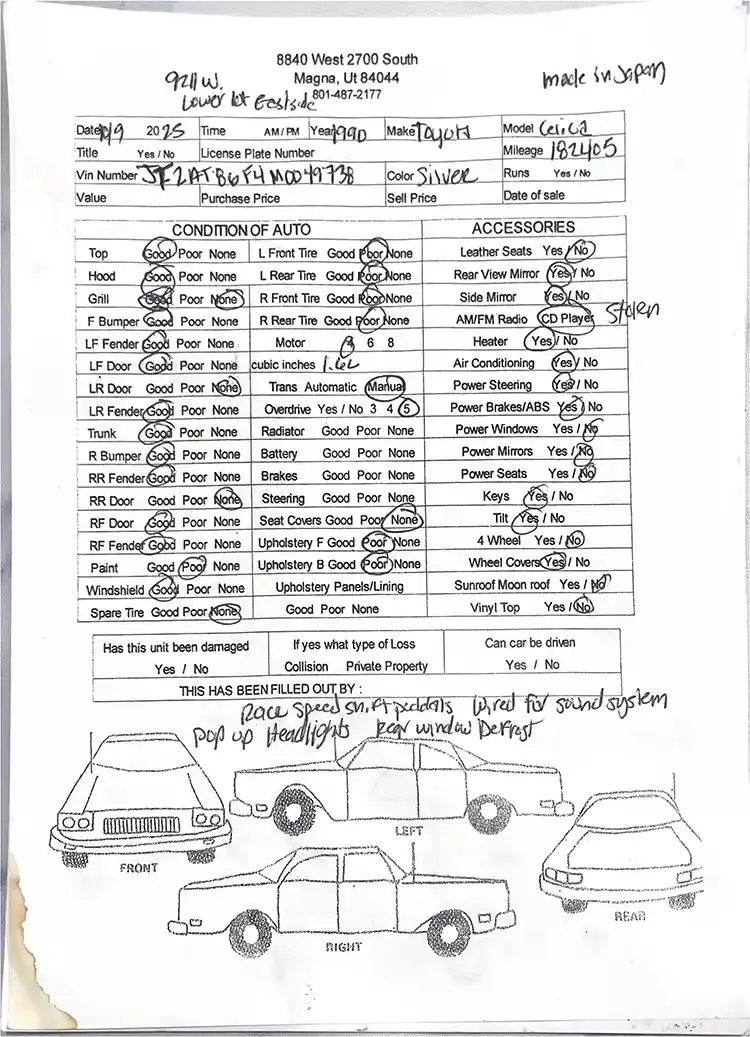 8840 West 2700 South
9211 W. Magna, Ut 84044 made in Japan
Lower lot Eastside 801-487-2177
Date 10/9 2025 Time AM / PM Year 1990 Make Toyota Model Celica
Title Yes / No License Plate Number Mileage 182405
Vin Number JT2AT86F4M0049738 Color Silver Runs Yes / No
Value Purchase Price Sell Price Date of sale
CONDITION OF AUTO ACCESSORIES
Top Good Poor None L Front Tire Good Poor None Leather Seats Yes / No
Hood Good Poor None L Rear Tire Good Poor None Rear View Mirror Yes / No
Grill Good Poor None R Front Tire Good Poor None Side Mirror Yes / No
F Bumper Good Poor None R Rear Tire Good Poor None AM/FM Radio CD Player Stolen
LF Fender Good Poor None Motor 6 8 Heater Yes / No
LF Door Good Poor None cubic inches 1.6L Air Conditioning Yes / No
LR Door Good Poor None Trans Automatic Manual Power Steering Yes / No
LR Fender Good Poor None Overdrive Yes / No 3 4 5 Power Brakes/ABS Yes / No
Trunk Good Poor None Radiator Good Poor None Power Windows Yes / No
R Bumper Good Poor None Battery Good Poor None Power Mirrors Yes / No
RR Fender Good Poor None Brakes Good Poor None Power Seats Yes / No
RR Door Good Poor None Steering Good Poor None Keys Yes / No
RF Door Good Poor None Seat Covers Good Poor None Tilt Yes / No
RF Fender Good Poor None Upholstery F Good Poor None 4 Wheel Yes / No
Paint Good Poor None Upholstery B Good Poor None Wheel Covers Yes / No
Windshield Good Poor None Upholstery Panels/Lining Sunroof Moon roof Yes / No
Spare Tire Good Poor None Good Poor None Vinyl Top Yes / No
Has this unit been damaged If yes what type of Loss Can car be driven
Yes / No Collision Private Property Yes / No
THIS HAS BEEN FILLED OUT BY :
Race speed shift peddals Wired for sound system
pop up Headlights Rear window Defrost
LEFT
FRONT
REAR
RIGHT